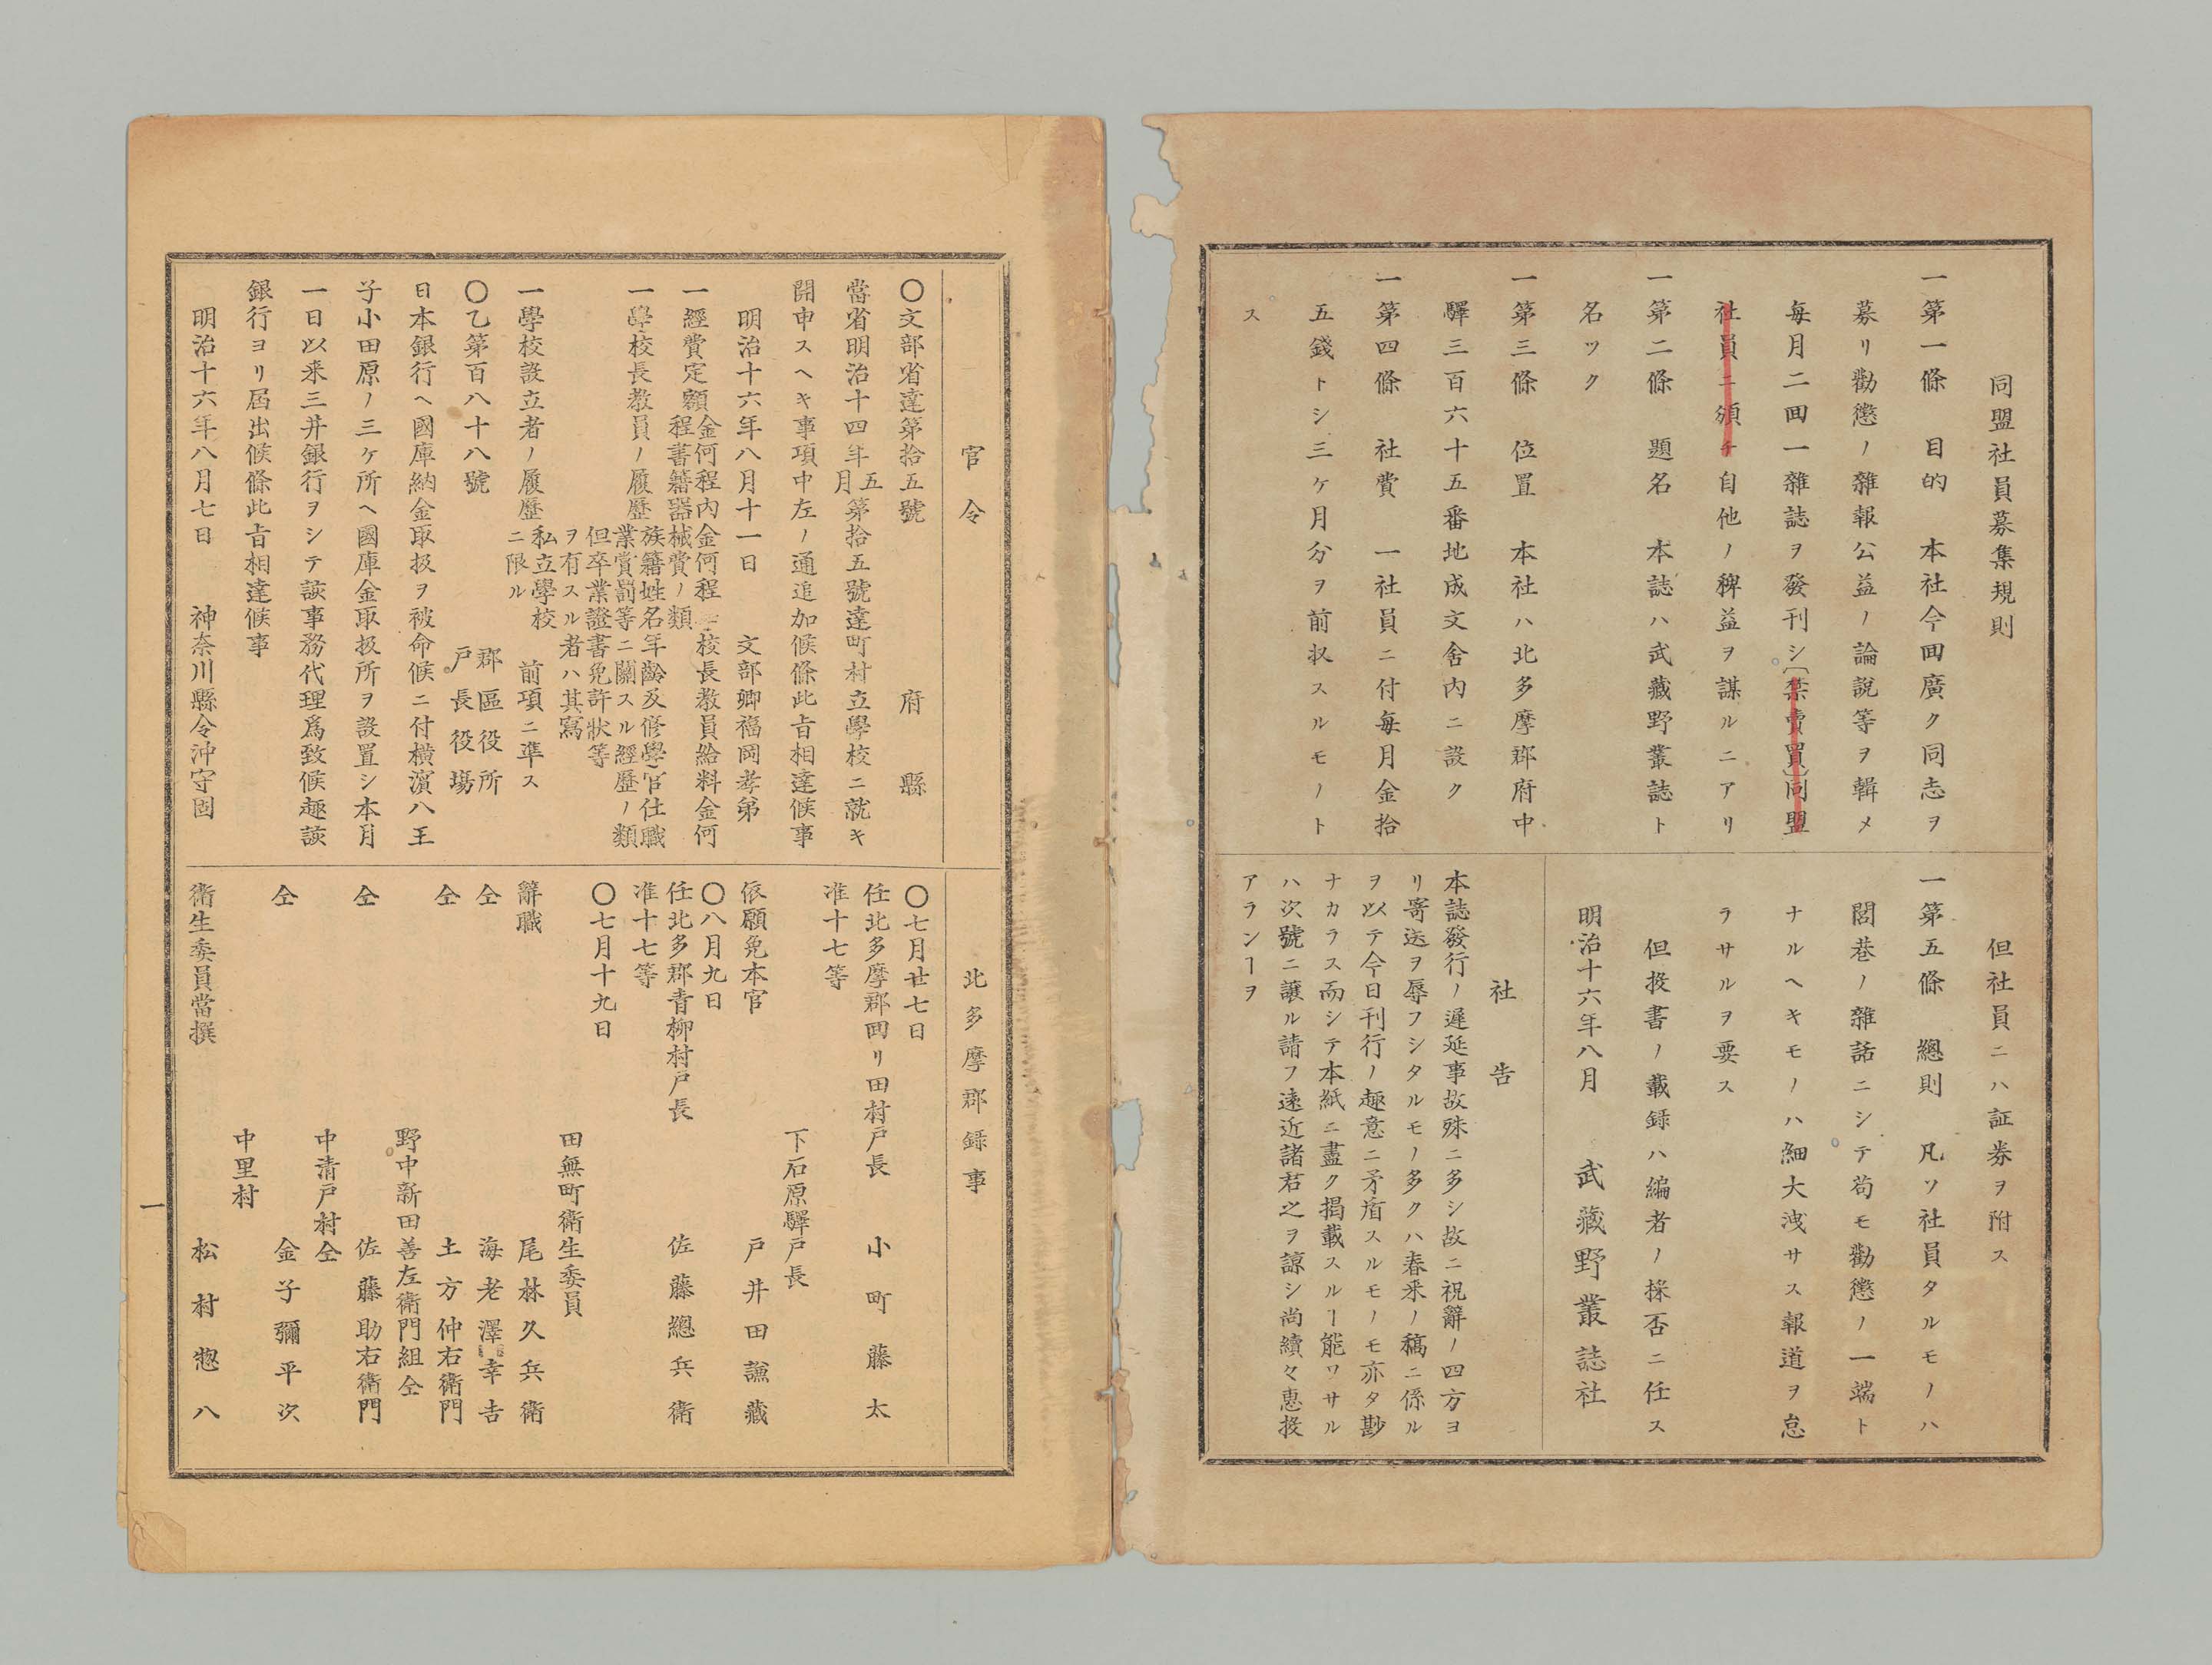 同盟社員募集規則
一第一條　目的　本社今回廣ク同志ヲ
募リ勸懲ノ雜報公益ノ論説等ヲ輯メ
毎月二回一雜誌ヲ發刊シ(禁賣買)同盟
社員ニ頒チ自他ノ稗益ヲ謀ルニアリ
一第二條　題名　本誌ハ武藏野叢誌ト
名ツク
一第三條　位置　本社ハ北多摩郡府中
驛三百六十五番地成文舍内ニ設ク
一第四條　社費　一社員ニ付毎月金拾
五錢トシ三ケ月分ヲ前収スルモノト
ス
但社員ニハ証券ヲ附ス
一第五條　總則　凡ソ社員タルモノハ
閭巷ノ雜話ニシテ苟モ勸懲ノ一端ト
ナルヘキモノハ細大洩サス報道ヲ怠
ラサルヲ要ス
但投書ノ載録ハ編者ノ採否ニ任ス
明治十六年八月　武藏野叢誌社
社告
本誌發行ノ遲延事故殊ニ多シ故ニ祝辭ノ四方ヨ
リ寄送ヲ辱フシタルモノ多クハ春来ノ稿ニ係ル
ヲ以テ今日刊行ノ趣意ニ矛盾スルモノモ亦タ尠
ナカラス而シテ本紙ニ盡ク掲載スルヿ能ワサル
ハ次號ニ讓ル請フ遠近諸君之ヲ諒シ尚續々惠投
アランヿヲ
官令
〇文部省達第拾五號　府縣
當省明治十四年五月第拾五號達町村立學校ニ就キ
開申スヘキ事項中左ノ通追加候條此旨相達候事
明治十六年八月十一日　文部卿福岡孝弟
一經費定額　金何程内金何程　校長教員給料金何
程書籍器械費ノ類
一學校長教員ノ履歴　族籍姓名年齡及修學官仕職
業賞罰等ニ關スル經歴ノ類
但卒業證書免許狀等
ヲ有スル者ハ其寫
一學校設立者ノ履歴　私立學校
ニ限ル　前項ニ準ス
〇乙第百八十八號　郡區役所
戸長役場
日本銀行ヘ國庫納金取扱ヲ被命候ニ付横濱八王
子小田原ノ三ケ所ヘ國庫金取扱所ヲ設置シ本月
一日以来三井銀行ヲシテ該事務代理爲致候趣該
銀行ヨリ屆出候條此旨相達候事
明治十六年八月七日　神奈川縣令沖守固
北多摩郡録事
〇七月廿七日
任北多摩郡回リ田村戸長　小町藤太
准十七等
下石原驛戸長
依願免本官　戸井田謙藏
〇八月九日
任北多郡青柳村戸長　佐藤總兵衛
准十七等
〇七月十九日
田無町衛生委員
辭職　尾林久兵衛
仝　海老澤幸吉
仝　土方仲右衛門
野中新田善左衛門組仝
仝　佐藤助右衛門
中清戸村仝
仝　金子彌平次
中里村
衛生委員當撰　松村惣八
一